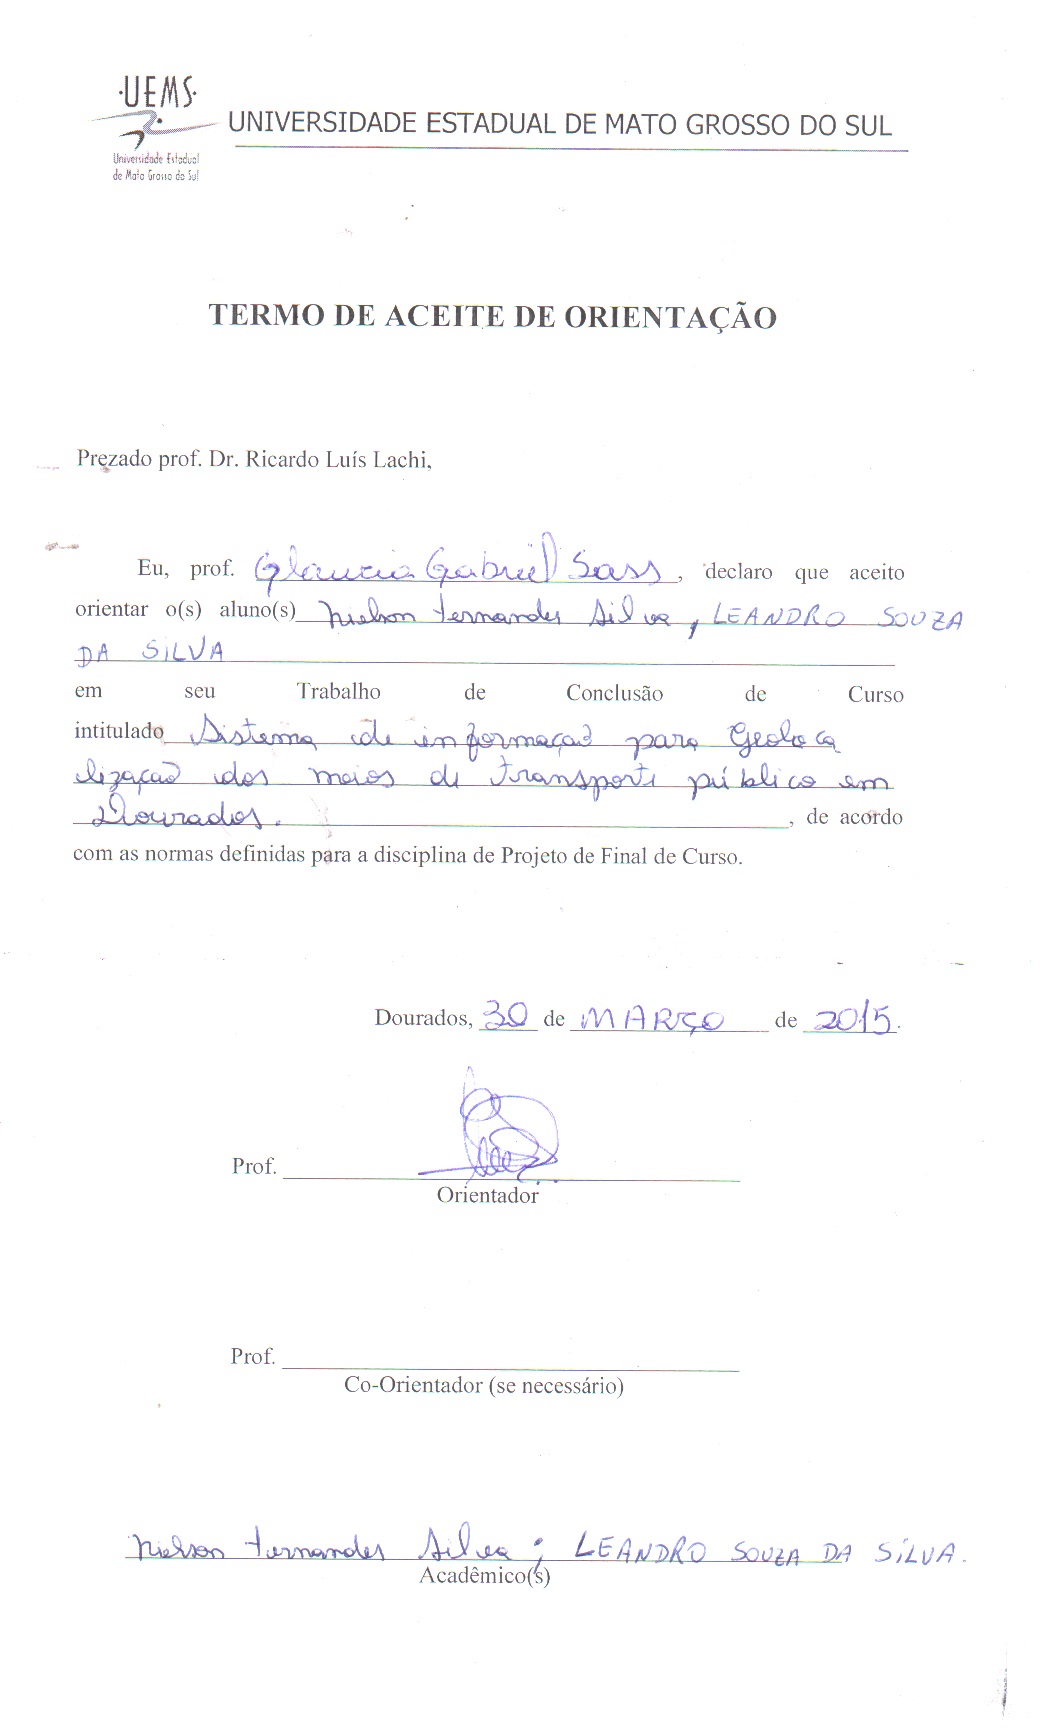 ·UEMS·
Universidade Estadual
de Mato Grosso do Sul
UNIVERSIDADE ESTADUAL DE MATO GROSSO DO SUL
TERMO DE ACEITE DE ORIENTAÇÃO
Prezado prof. Dr. Ricardo Luís Lachi,
Eu, prof. Glaucia Gabriel Sass, declaro que aceito
orientar o(s) aluno(s) Nielson Fernandes Silva, LEANDRO SOUZA
DA SILVA
em seu Trabalho de Conclusão de Curso
intitulado Sistema de informação para Geoloca
lização dos meios de transporte público em
Dourados. , de acordo
com as normas definidas para a disciplina de Projeto de Final de Curso.
Dourados, 30 de MARÇO de 2015.
Prof.
Orientador
Prof.
Co-Orientador (se necessário)
Nielson Fernandes Silva ; LEANDRO SOUZA DA SILVA.
Acadêmico(s)